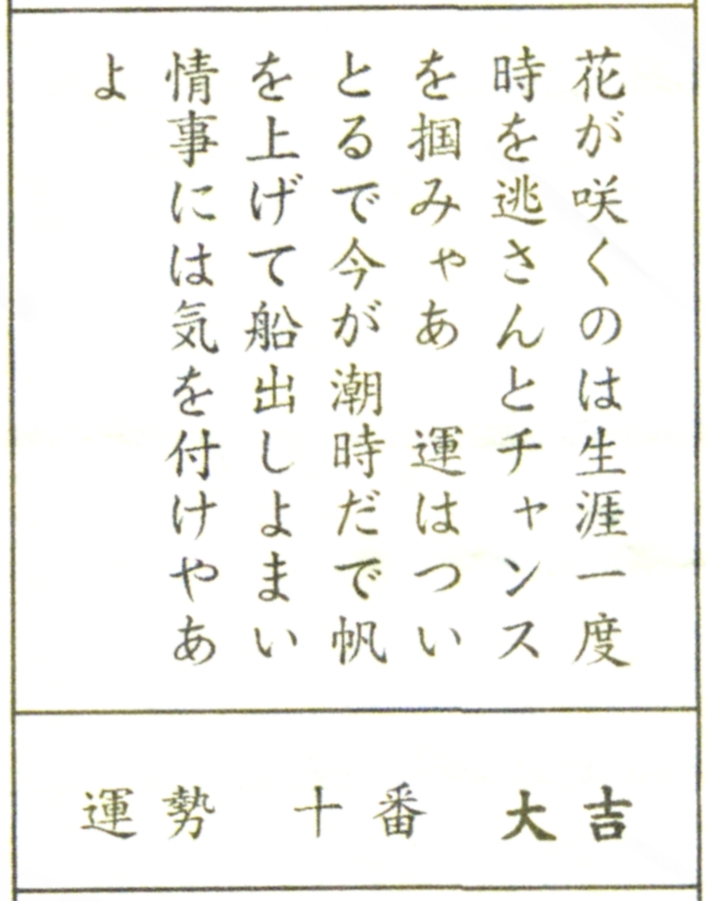 花が咲くのは生涯一度
時を逃さんとチャンス
を掴みゃあ　運はつい
とるで今が潮時だで帆
を上げて船出しよまい
情事には気を付けやあ
よ
運勢　十番　大吉